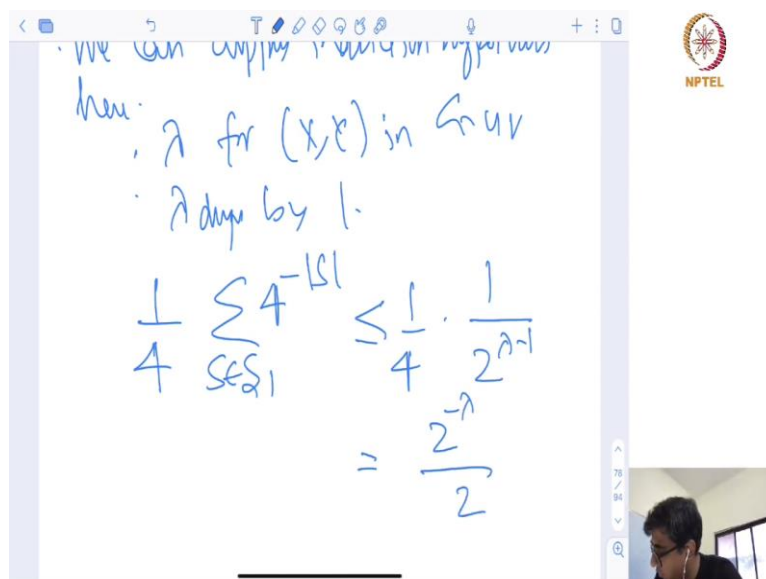 T
NPTEL
. We can apply induction hypothesis
here.
. λ for (X, Y) in G∩UV
. λ drops by 1.
1/4 ∑_{S∈S_1} 4^{-|S|} ≤ 1/4 · 1/2^{λ-1}
= 2^{-λ}/2
78
/
94